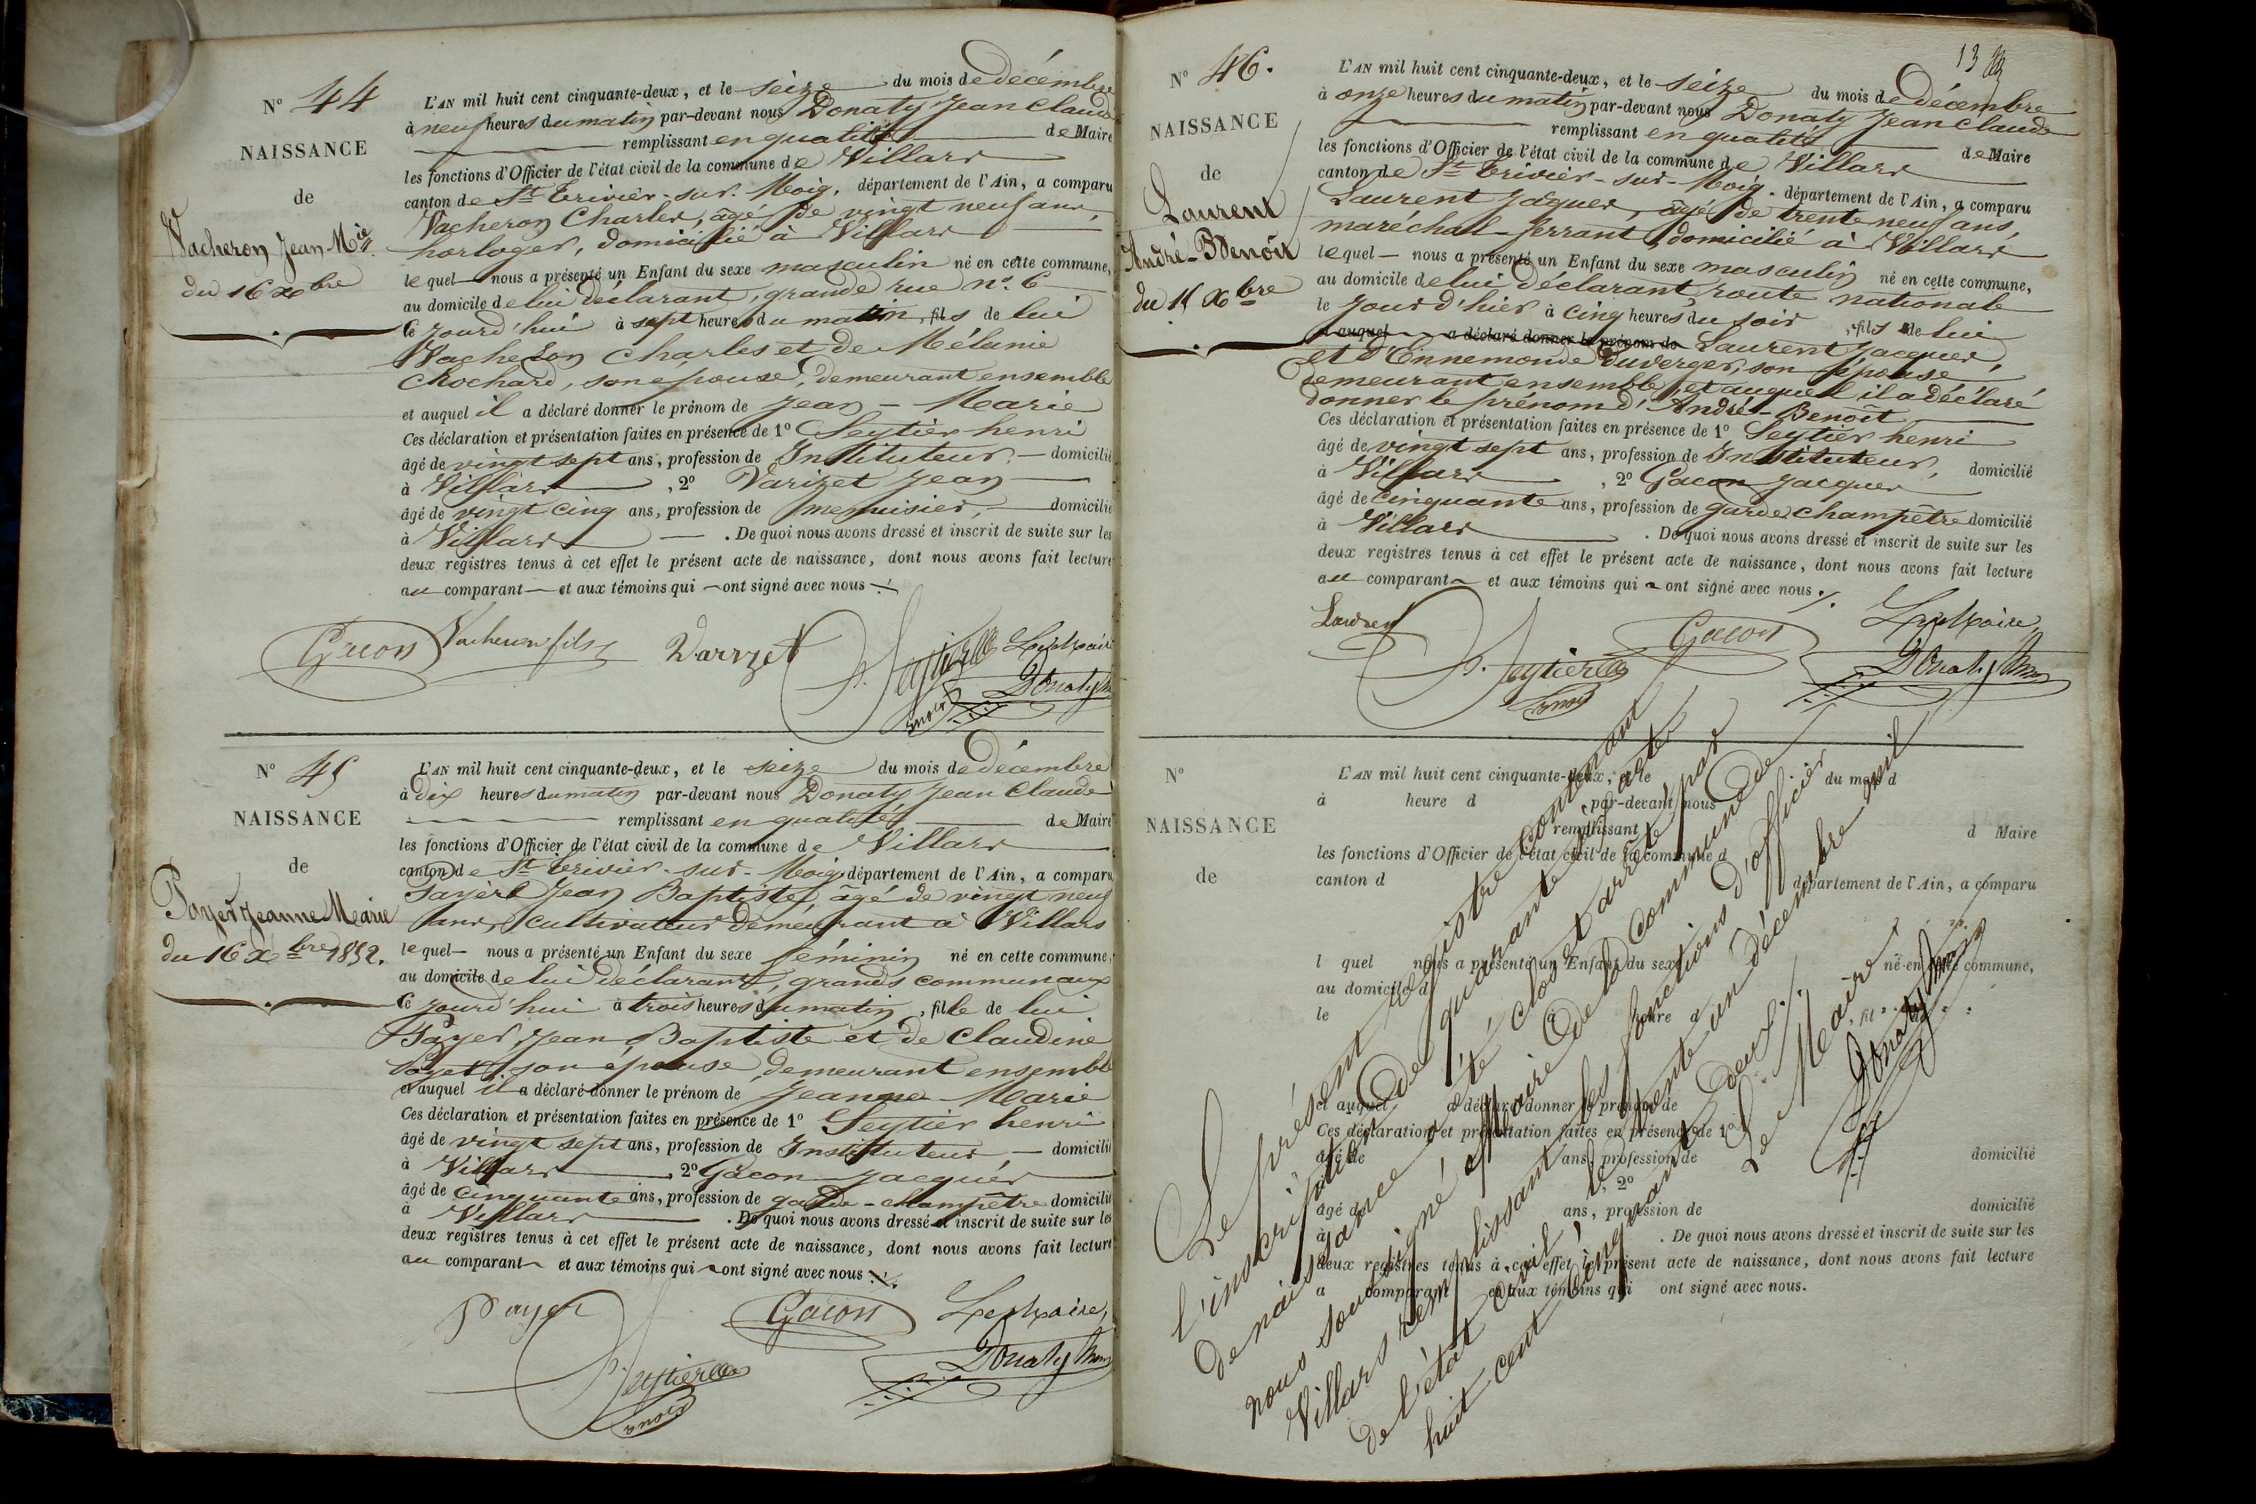 N° 44
NAISSANCE
de
Vacheron Jean Mie
du 16 Xbre
L'AN mil huit cent cinquante-deux, et le seize du mois de décembre
à neuf heures du matin par-devant nous Donaty Jean Claude
remplissant en qualité de Maire
les fonctions d'Officier de l'état civil de la commune de Villars
canton de St Trivier-sur-Moig. département de l'Ain, a comparu
Vacheron Charles, âgé de vingt neuf ans,
horloger, domicilié à Villars
lequel nous a présenté un Enfant du sexe masculin né en cette commune,
au domicile de lui déclarant, grande rue n°. 6
Ce jourd'hui à sept heures du matin, fils de lui
Vacheron Charles et de Mélanie
Chochard, son épouse, demeurant ensemble
et auquel il a déclaré donner le prénom de Jean - Marie
Ces déclaration et présentation faites en présence de 1° Seytier henri
âgé de vingt sept ans, profession de Instituteur, domicilié
à Villars, 2° Varizet Jean
âgé de vingt cinq ans, profession de menuisier, domicilié
à Villars. De quoi nous avons dressé et inscrit de suite sur les
deux registres tenus à cet effet le présent acte de naissance, dont nous avons fait lecture
au comparant et aux témoins qui ont signé avec nous
Gacon Vacheron fils Varizet Seytier
Donaty
N° 45
NAISSANCE
de
Payer Jeanne Marie
du 16 Xbre 1852.
L'AN mil huit cent cinquante-deux, et le seize du mois de décembre
à dix heures du matin par-devant nous Donaty Jean Claude
remplissant en qualité de Maire
les fonctions d'Officier de l'état civil de la commune de Villars
canton de St Trivier-sur-Moig. département de l'Ain, a comparu
Jean Baptiste, âgé de vingt neuf
ans, cultivateur demeurant à Villars
lequel nous a présenté un Enfant du sexe féminin né en cette commune,
au domicile de lui déclarant, grands communaux
Ce jourd'hui à trois heures du matin, fille de lui
Payer, Jean Baptiste et de Claudine
son épouse, demeurant ensemble
et auquel il a déclaré donner le prénom de Jeanne - Marie
Ces déclaration et présentation faites en présence de 1° Seytier henri
âgé de vingt sept ans, profession de Instituteur, domicilié
à Villars, 2° Gacon Jacques
âgé de cinquante ans, profession de garde-champêtre domicilié
à Villars. De quoi nous avons dressé et inscrit de suite sur les
deux registres tenus à cet effet le présent acte de naissance, dont nous avons fait lecture
au comparant et aux témoins qui ont signé avec nous
Payer Gacon
Seytier Donaty Maire
13
N° 46.
NAISSANCE
de
Laurent
André-Benoît
du 15 Xbre
L'AN mil huit cent cinquante-deux, et le seize du mois de décembre
à onze heures du matin par-devant nous Donaty Jean Claude
remplissant en qualité de Maire
les fonctions d'Officier de l'état civil de la commune de Villars
canton de St Trivier-sur-Moig. département de l'Ain, a comparu
Laurent Jacques, âgé de trente neuf ans,
maréchal-ferrant, domicilié à Villars
lequel nous a présenté un Enfant du sexe masculin né en cette commune,
au domicile de lui déclarant route nationale
le jour d'hier à cinq heures du soir, fils de lui
et auquel a déclaré donner le prénom de Laurent Jacques,
et d'Ennemonde Duverger, son épouse,
demeurant ensemble, et auquel il a déclaré
donner le prénom d'André-Benoît
Ces déclaration et présentation faites en présence de 1° Seytier henri
âgé de vingt sept ans, profession de Instituteur, domicilié
à Villars, 2° Gacon Jacques
âgé de cinquante ans, profession de garde champêtre domicilié
à Villars. De quoi nous avons dressé et inscrit de suite sur les
deux registres tenus à cet effet le présent acte de naissance, dont nous avons fait lecture
au comparant et aux témoins qui ont signé avec nous.
Laurent Seytier Gacon
Donaty Maire
N°
NAISSANCE
de
L'AN mil huit cent cinquante-deux, et le du mois d
à heure d par-devant nous
remplissant d Maire
les fonctions d'Officier de l'état civil de la commune d
canton d département de l'Ain, a comparu
l quel nous a présenté un Enfant du sexe né en cette commune,
au domicile d
le à heure d , fil de
et auquel a déclaré donner le prénom de
Ces déclaration et présentation faites en présence de 1°
âgé de ans, profession de domicilié
à , 2°
âgé de ans, profession de domicilié
à . De quoi nous avons dressé et inscrit de suite sur les
deux registres tenus à cet effet le présent acte de naissance, dont nous avons fait lecture
a comparant et aux témoins qui ont signé avec nous.
Le présent registre contenant
l'inscription de quarante six actes
de naissance a été clos et arrêté par
nous soussigné Maire de la commune de
Villars remplissant les fonctions d'officier
de l'état civil, le trente un décembre mil
huit cent cinquante deux.
Le Maire
Donaty Maire